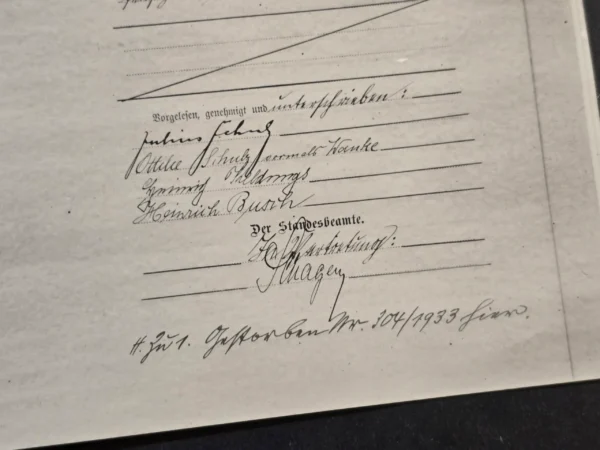 Vorgelesen, genehmigt und unterschrieben:
Julius Schulz
Ottilie Schulz vormals Wanke
Heinrich
Heinrich Busch
Der Standesbeamte.
In Vertretung:
H. Zu 1. Gestorben Nr. 304/1933 hier.